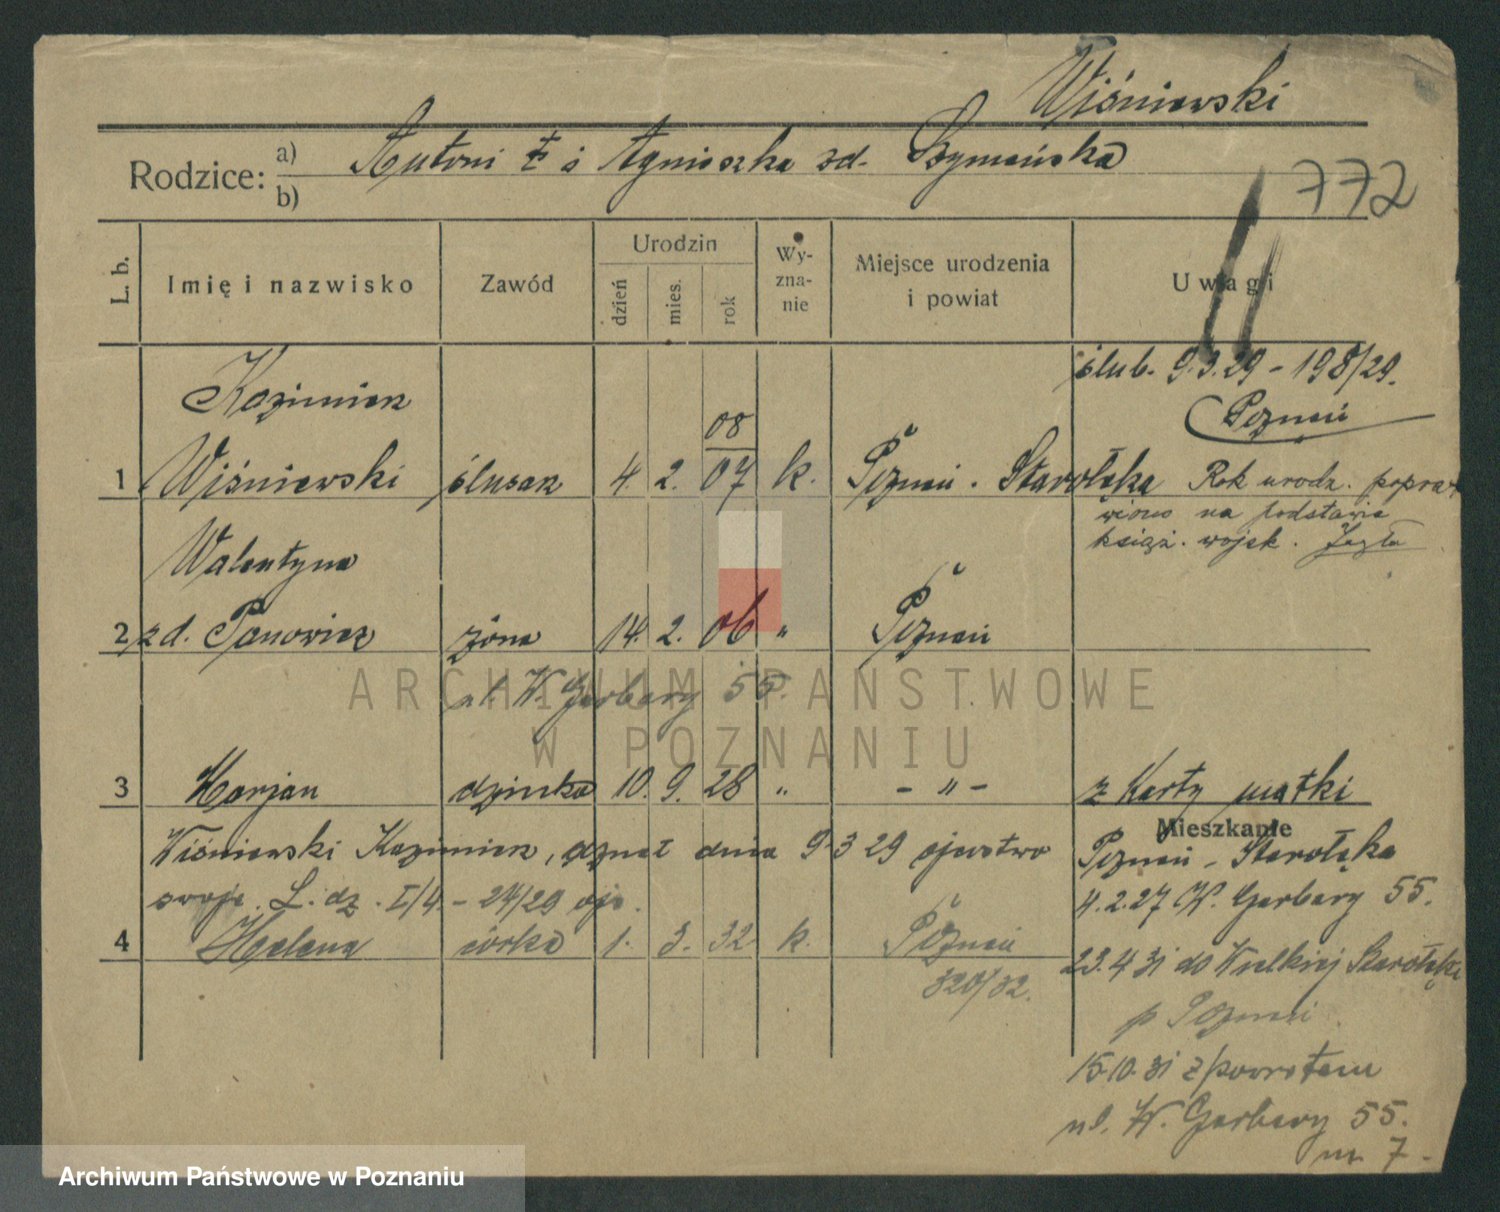 Wiśniewski
Rodzice: a) Antoni i Agnieszka zd. Szymańska
b)
772
L. b. Imię i nazwisko Zawód Urodzin dzień mies. rok Wy-zna-nie Miejsce urodzenia i powiat Uwagi
ślub. 9.3.29 - 198/29.
Kazimierz
Poznań
08
1 Wiśniewski ślusarz 4. 2. 07 k. Poznań - Starołęka Rok urodz. popra-
wiono na podstawie
książ. wojsk.
Walentyna
2 zd. Panowicz żona 14. 2. 06 " Poznań
ul. W. Garbary 55.
3 Marjan dziecko 10. 9. 28 " - " - z Karty matki
Mieszkanie
Wiśniewski Kazimierz, uznał dnia 9 3 29 ojcostwo
Poznań - Starołęka
swoje. L. dz. I/4. - 24/29
4.2.27 W. Garbary 55.
4 Helena córka 1. 3. 32 k. Poznań
23.4 31 do Wielkiej Starołęki
320/32.
p Poznań
15.10.31 z powrotem
ul. W. Garbary 55.
m 7.
ARCHIWUM PAŃSTWOWE
W POZNANIU
Archiwum Państwowe w Poznaniu